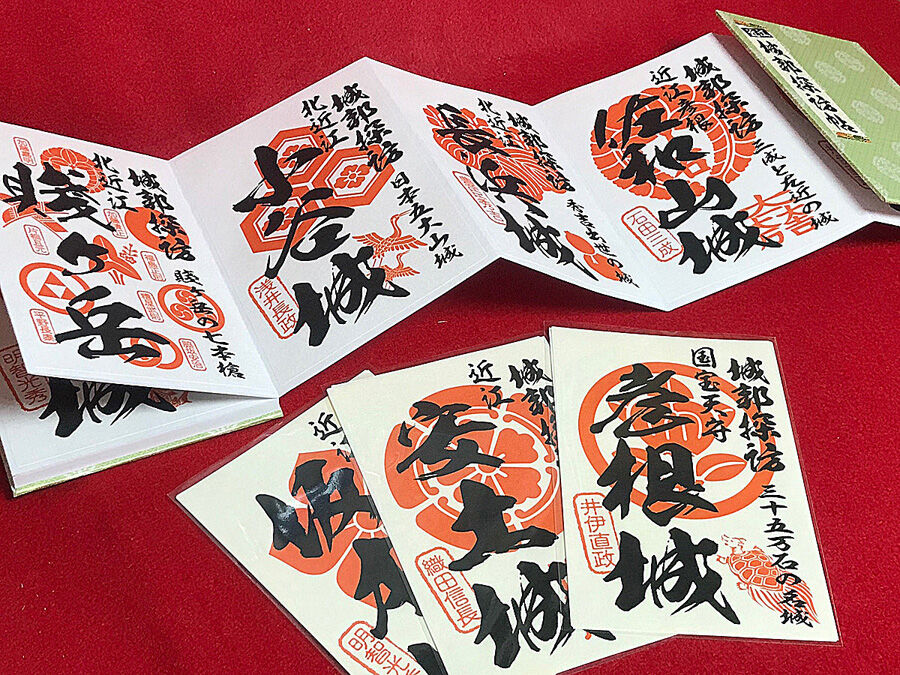 城郭探訪帖
城郭探訪
三成と左近の城
近江彦根
佐和山城
石田三成
城郭探訪
秀吉出世の城
北近江
長浜城
城郭探訪
日本五大山城
北近江
小谷城
浅井長政
城郭探訪
賤ヶ岳の七本槍
北近江
賤ヶ岳
平野長泰
城
明智光秀
城郭探訪
三十五万石の名城
国宝天守
彦根城
井伊直政
城郭
近江
安土城
織田信長
近
坂
明智光